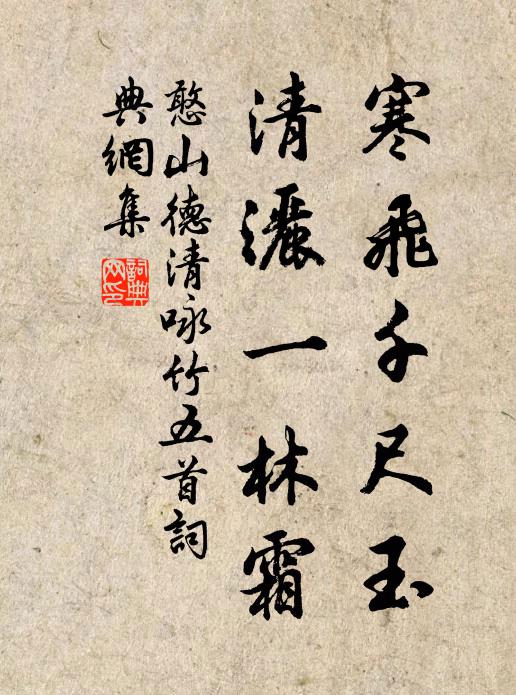 寒飛千尺玉
清灑一林霜
憨山德清咏竹五首詞
典網集
詞典
网印